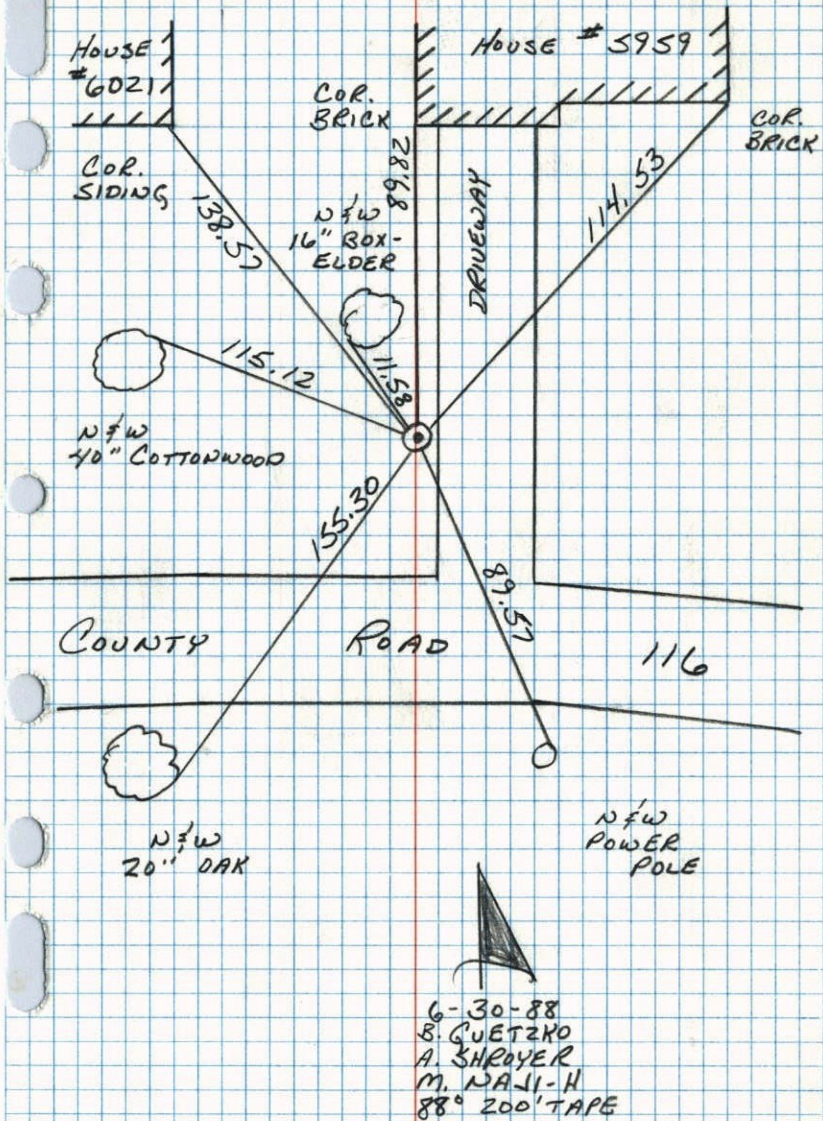 HOUSE
#6021
HOUSE #5959
COR.
BRICK
COR.
BRICK
COR.
SIDING
138.57
89.82
N & W
16" BOX-
ELDER
DRIVEWAY
114.53
115.12
11.58
N & W
40" COTTONWOOD
155.30
89.57
COUNTY ROAD 116
N & W
20" OAK
N & W
POWER
POLE
6-30-88
B. GUETZKO
A. SHROYER
M. NAJI-H
88° 200' TAPE